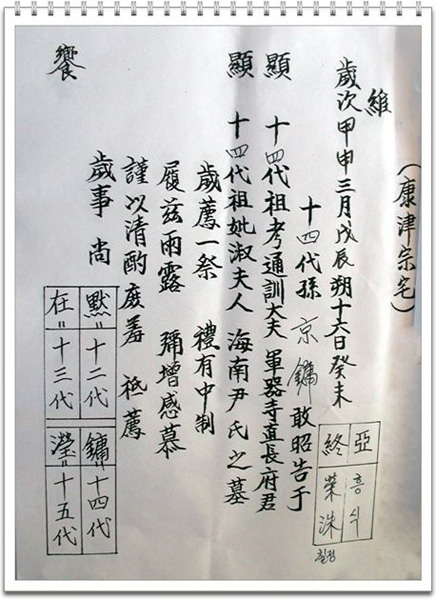 (康津宗宅)
維
歲次甲申三月戊辰朔十六日癸未
十四代孫 京鏞 敢昭告于
顯 十四代祖考通訓大夫 軍器寺直長府君
顯 十四代祖妣淑夫人 海南尹氏之墓
歲薦一祭 禮有中制
履玆雨露 彌增感慕
謹以清酌庶羞 祗薦
歲事 尚
饗
亞 흥식
終 榮洙
默=十二代
在=十三代
鏞=十四代
瀅=十五代